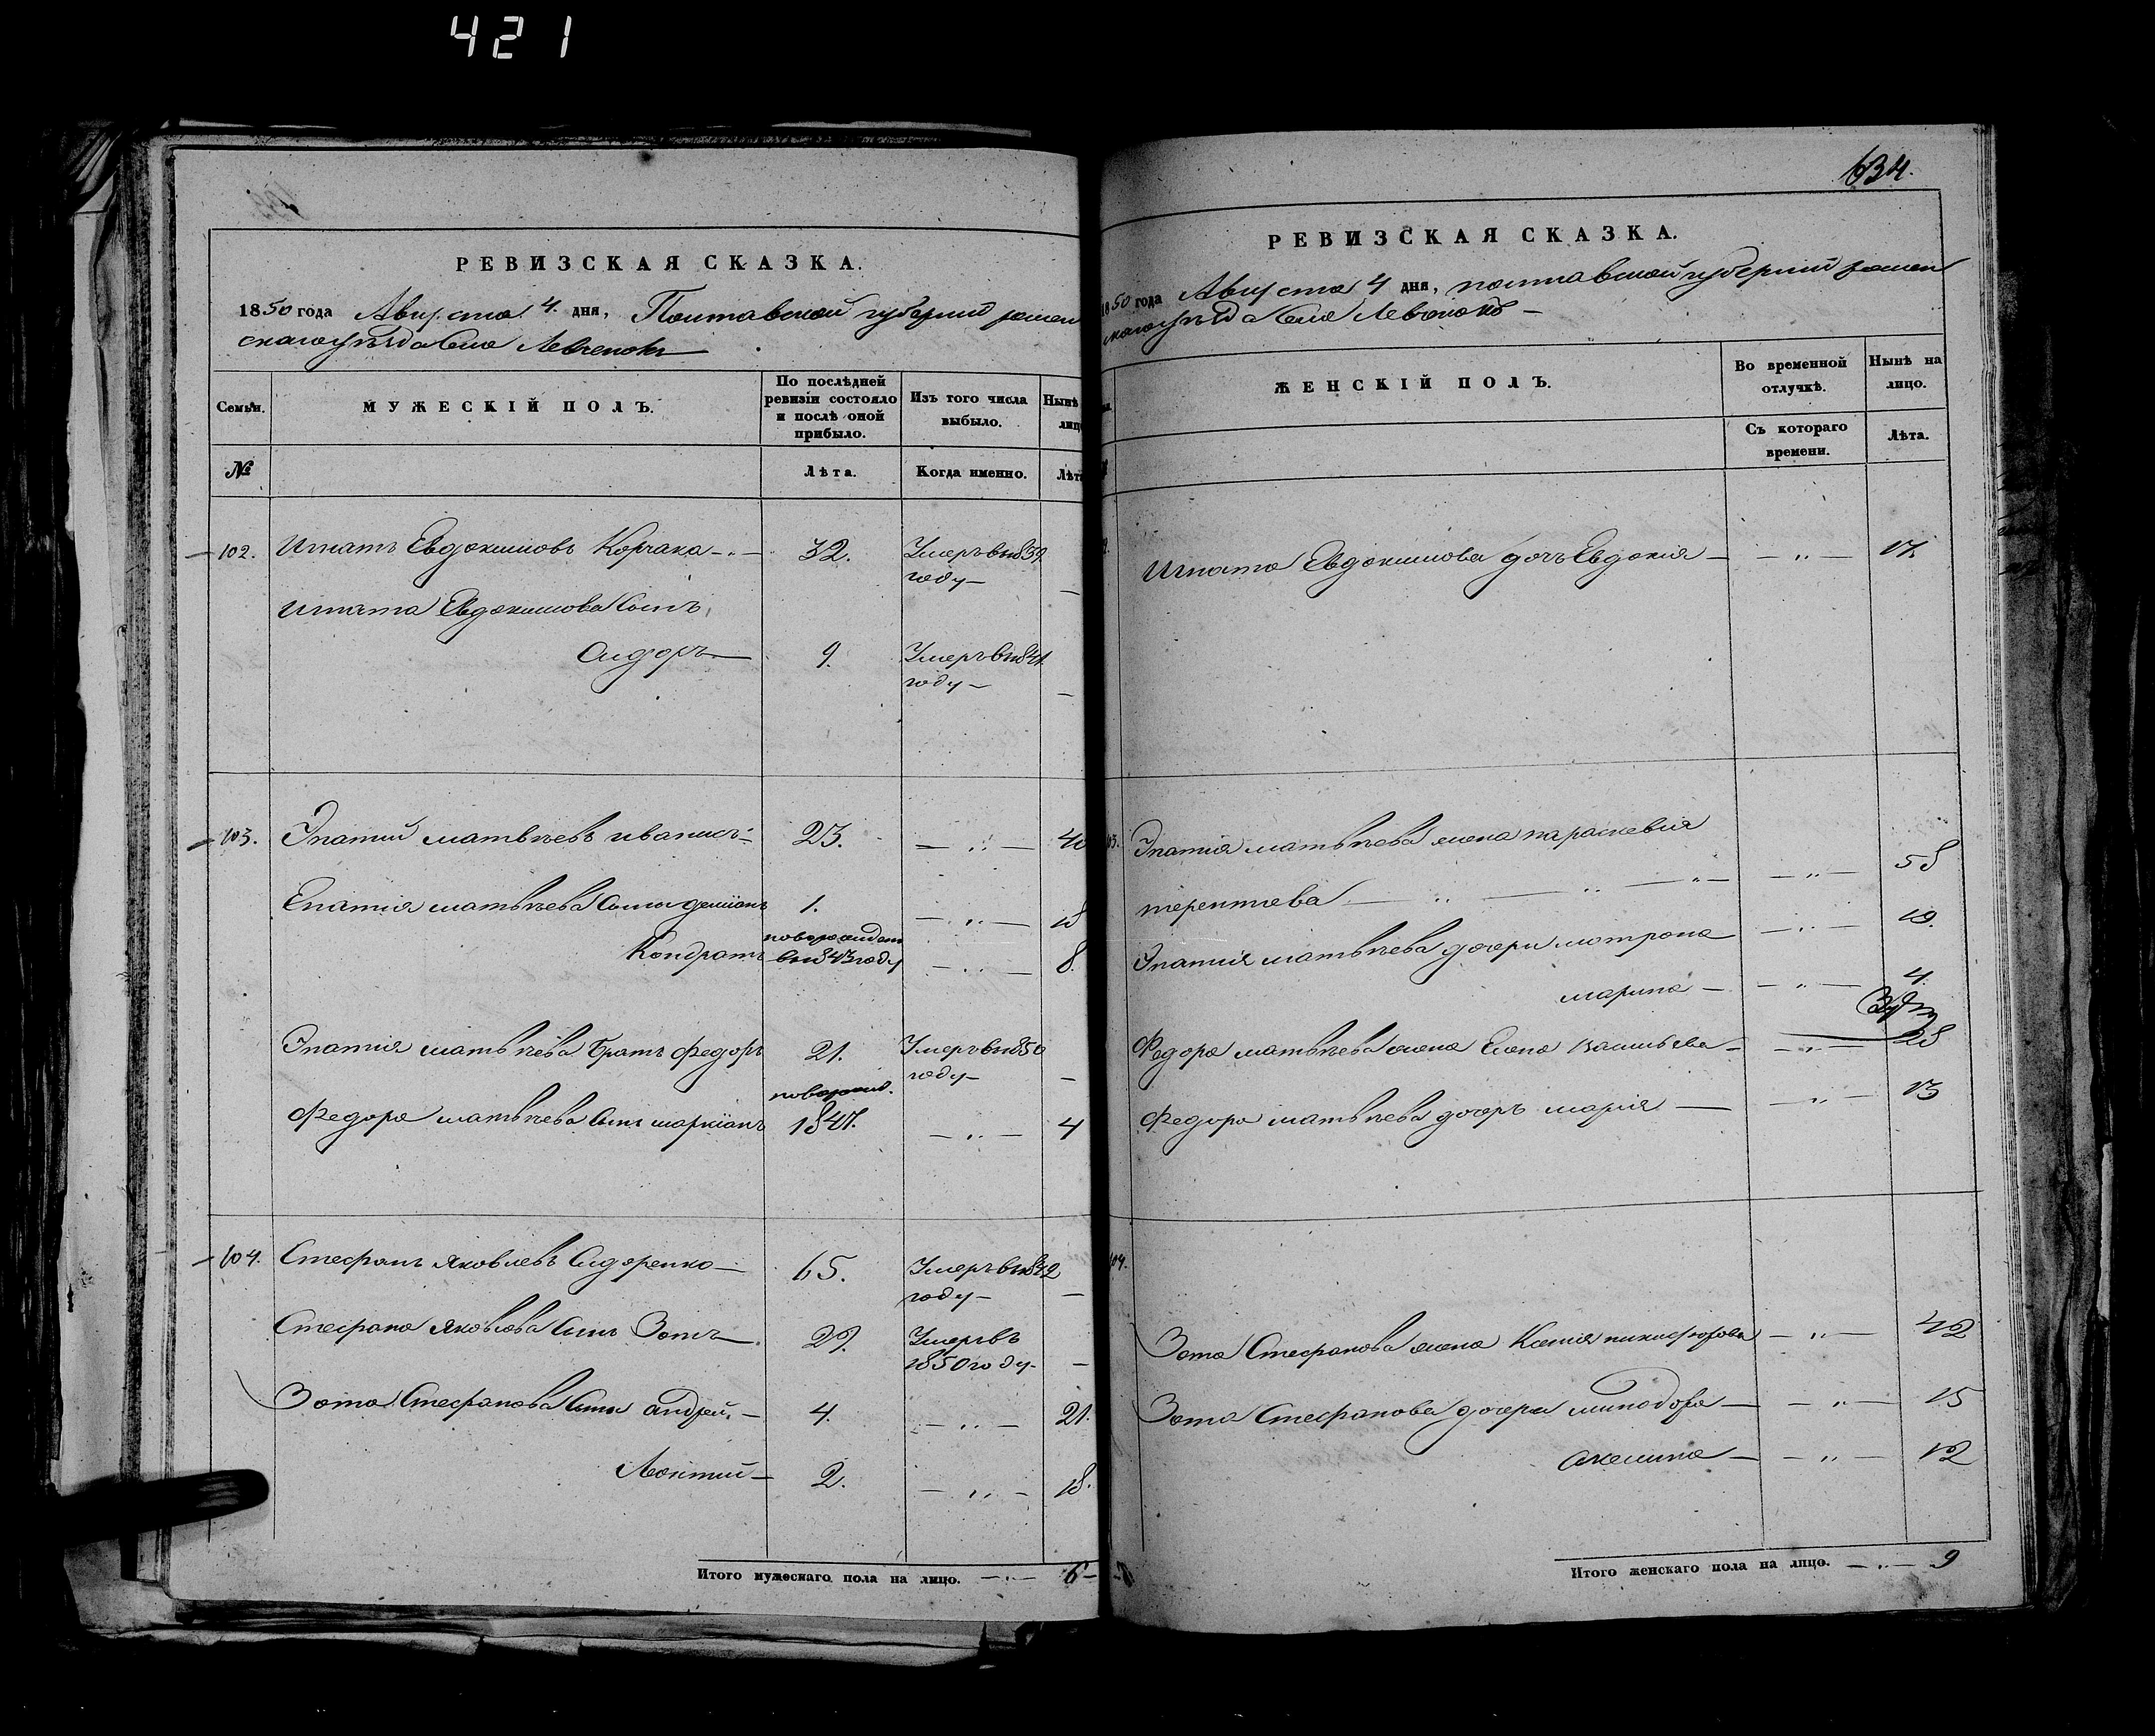 421
РЕВИЗСКАЯ СКАЗКА.
1850 года Августа 4. дня, Полтавской губерніи ромен
скаго уѣзда села Левченокъ
Семьи.
МУЖЕСКІЙ ПОЛЪ.
По послѣдней ревизіи состояло и послѣ оной прибыло.
Изъ того числа выбыло.
Нынѣ
лиц
№
Лѣта.
Когда именно.
Лѣт
102. Игнатъ Евдокимовъ Корчака 32. Умеръ въ 1839
году
Игната Евдокимова сынъ
Сидоръ 9. Умеръ въ 1841.
году
103. Эпатій матвѣевъ 23. 40
Епатія матвѣева сыны деміянъ 1. 18
Кондратъ новорожден
в 1843 году 8.
Эпатія матвѣева братъ федоръ 21. Умеръ въ 1850
году
новорожд.
Федора матвѣева сынъ маркіанъ 1847. 4
104. Стефанъ Яковлевъ Сидоренко 65. Умеръ въ 1842
году
Стефана Яковлева сынъ Зотъ 29. Умеръ въ
1850 году
Зота Стефанова сыны андрей 4. 21.
Леонтий 2. 18.
Итого мужескаго пола на лицо. 6
634.
РЕВИЗСКАЯ СКАЗКА.
1850 года Августа 4 дня, полтавской губерніи ромен
скаго уѣзда села Левченокъ
ЖЕНСКІЙ ПОЛЪ.
Во временной отлучкѣ.
Нынѣ на лицо.
Съ котораго времени.
Лѣта.
Игната Евдокимова дочь Евдокия 17.
103. Эпатія матвѣева жена параскевия
терентиева 38
Эпатія матвѣева дочери мотрона 19.
марина 4.
Федора матвѣева жена Елена васильева 28
Федора матвѣева дочерь мария 13
104.
Зота Стефанова жена Ксения никифорова 42
Зота Стефанова дочери минодора 15
акилина 12
Итого женскаго пола на лицо. 9